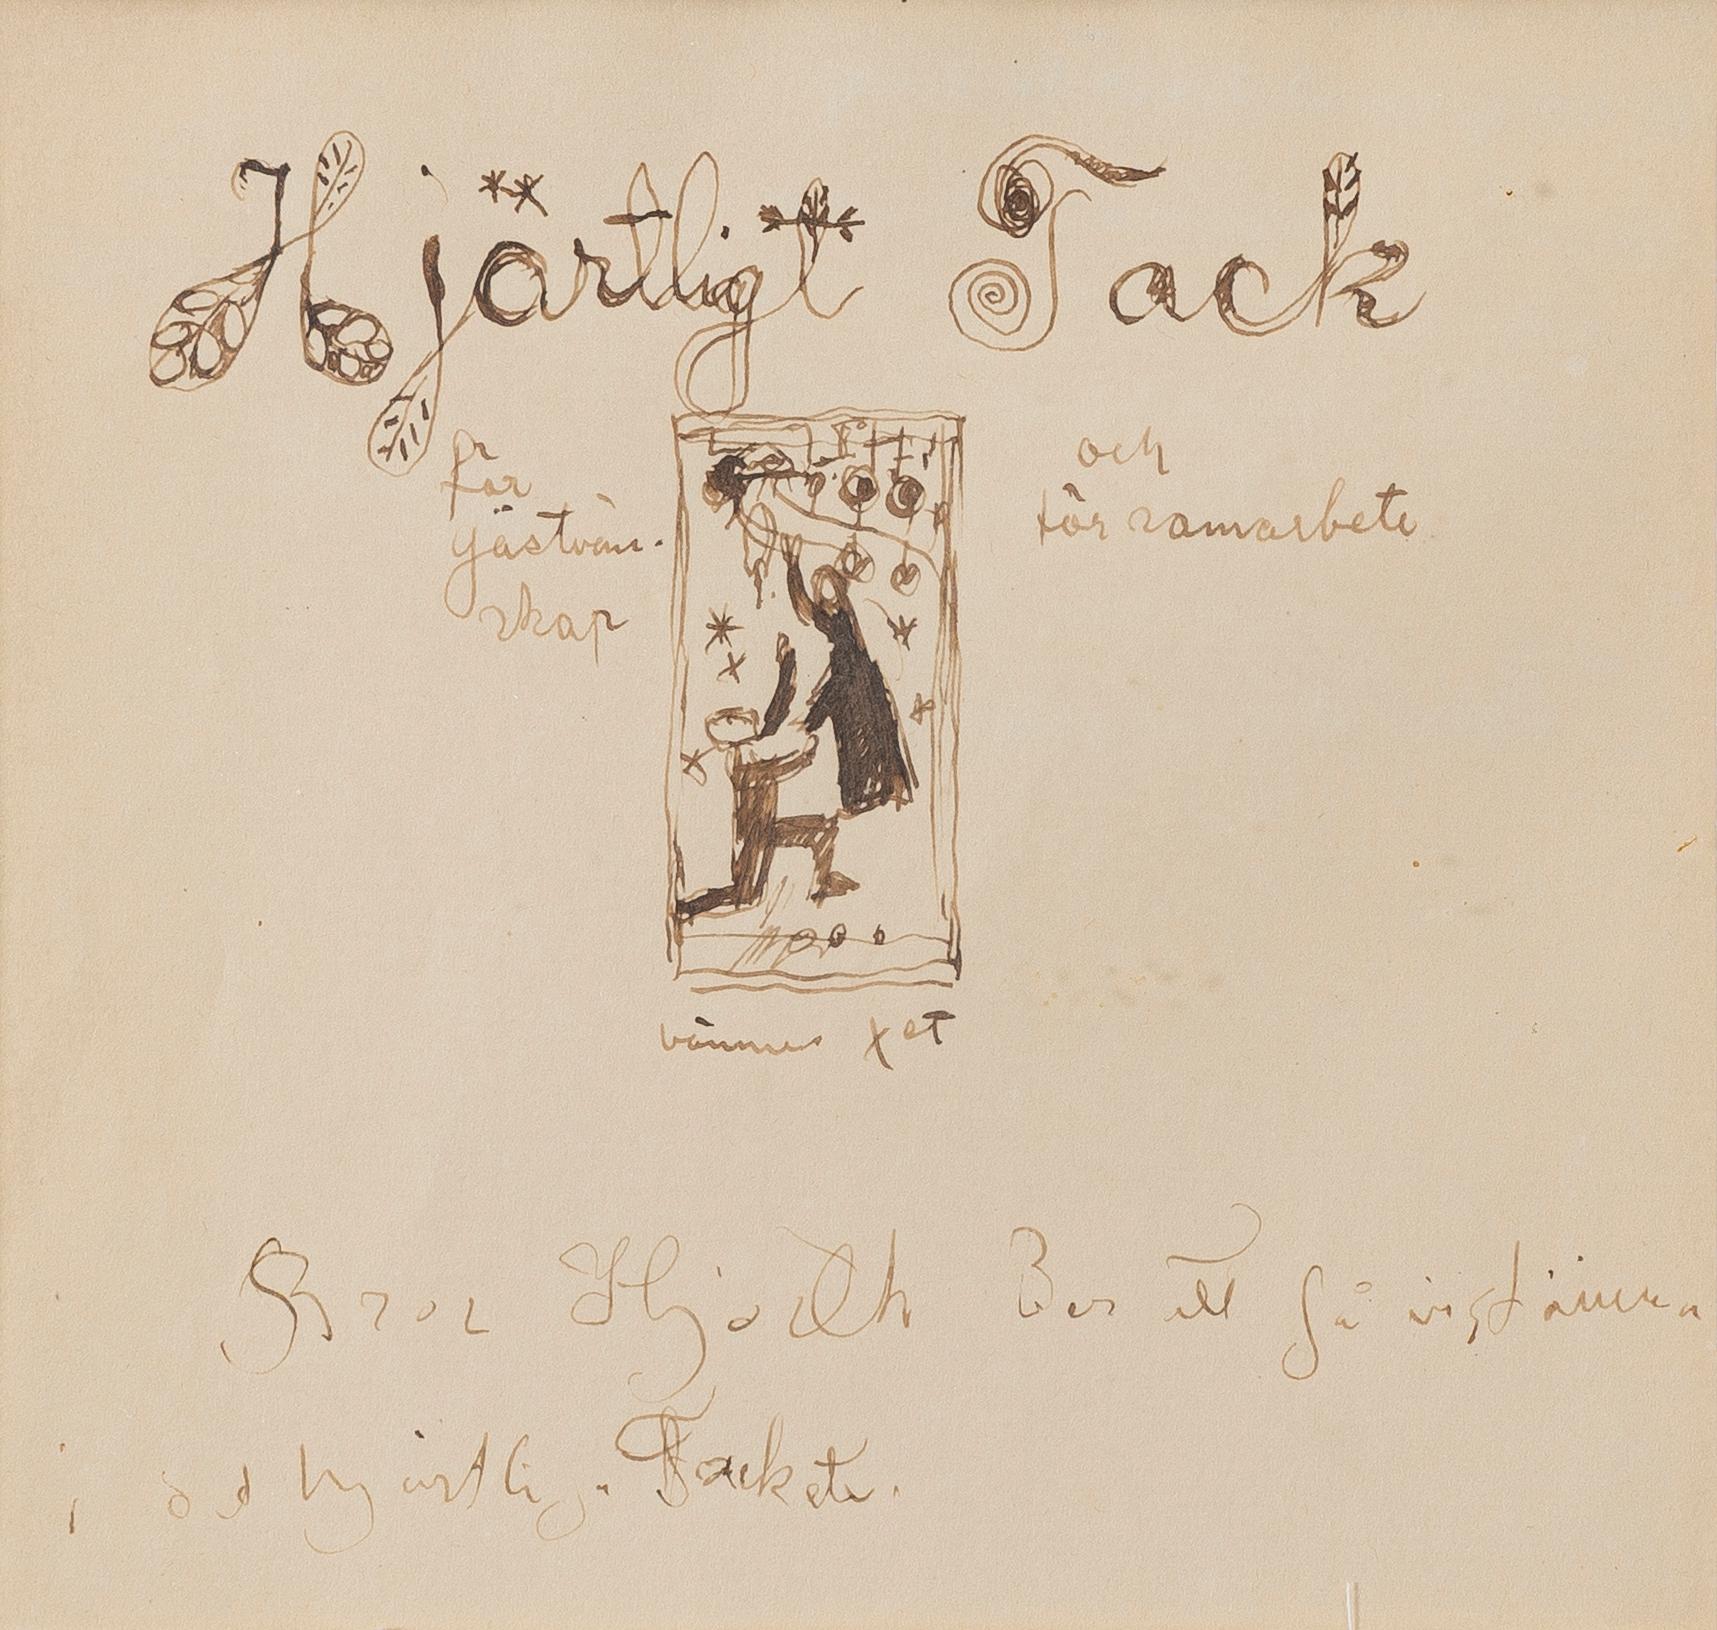 Hjärtligt Tack
för
gästvän-
skap
och
för samarbete
vännen Xet
Bror Hjorth Ber att få instämma
i det hjärtliga Tacket.